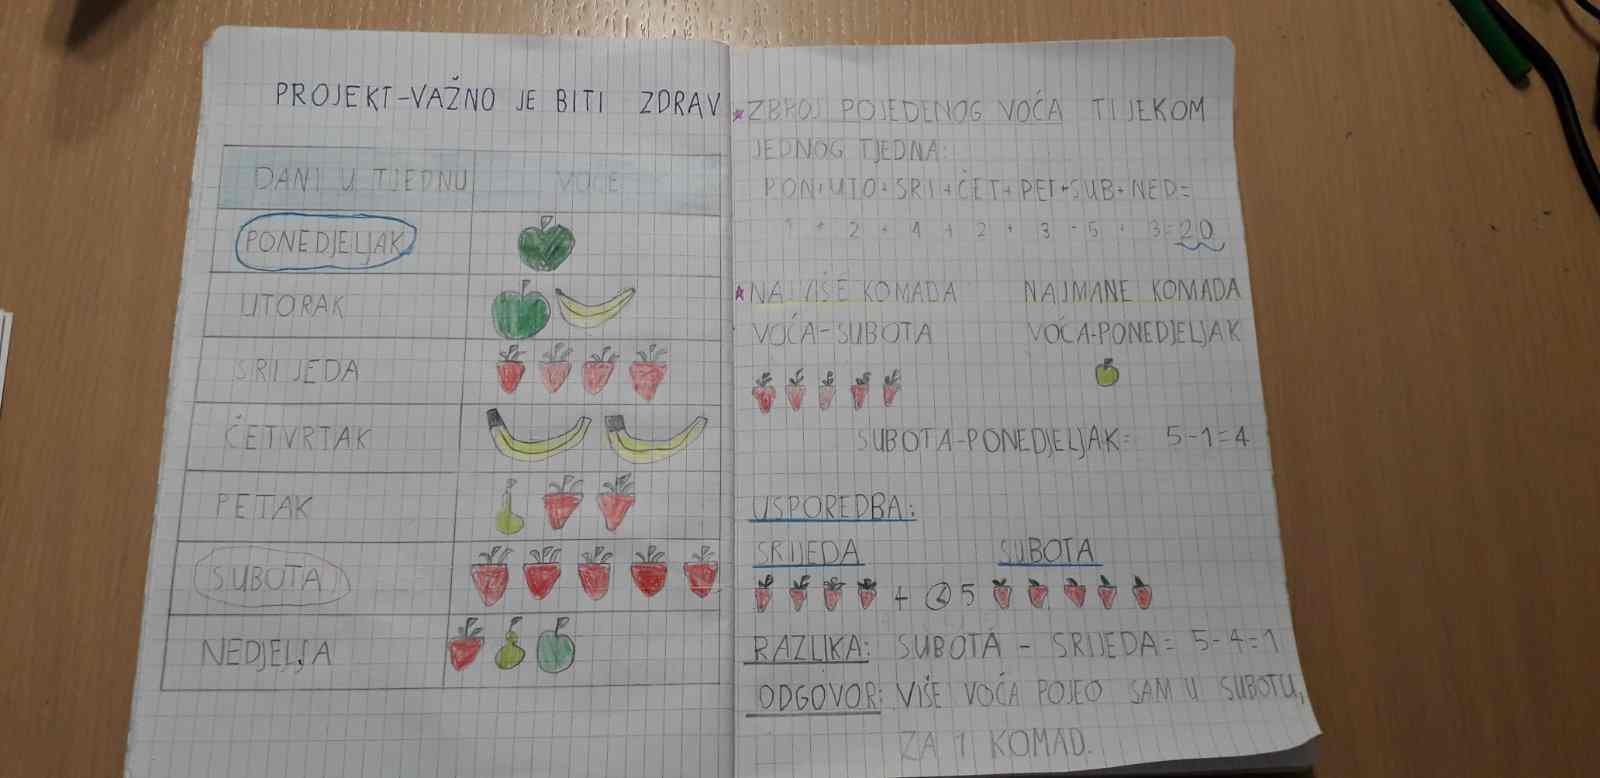 PROJEKT-VAŽNO JE BITI ZDRAV
DANI U TJEDNU VOĆE
PONEDJELJAK
UTORAK
SRIJEDA
ČETVRTAK
PETAK
SUBOTA
NEDJELJA
ZBROJ POJEDENOG VOĆA TIJEKOM
JEDNOG TJEDNA:
PON+UTO+SRI+ČET+PET+SUB+NED=
1 + 2 + 4 + 2 + 3 + 5 + 3=20
NAJVIŠE KOMADA NAJMANE KOMADA
VOĆA-SUBOTA VOĆA-PONEDJELJAK
SUBOTA-PONEDJELJAK= 5-1=4
USPOREDBA:
SRIJEDA SUBOTA
4 < 5
RAZLIKA: SUBOTA - SRIJEDA= 5-4=1
ODGOVOR: VIŠE VOĆA POJEO SAM U SUBOTU,
ZA 1 KOMAD.